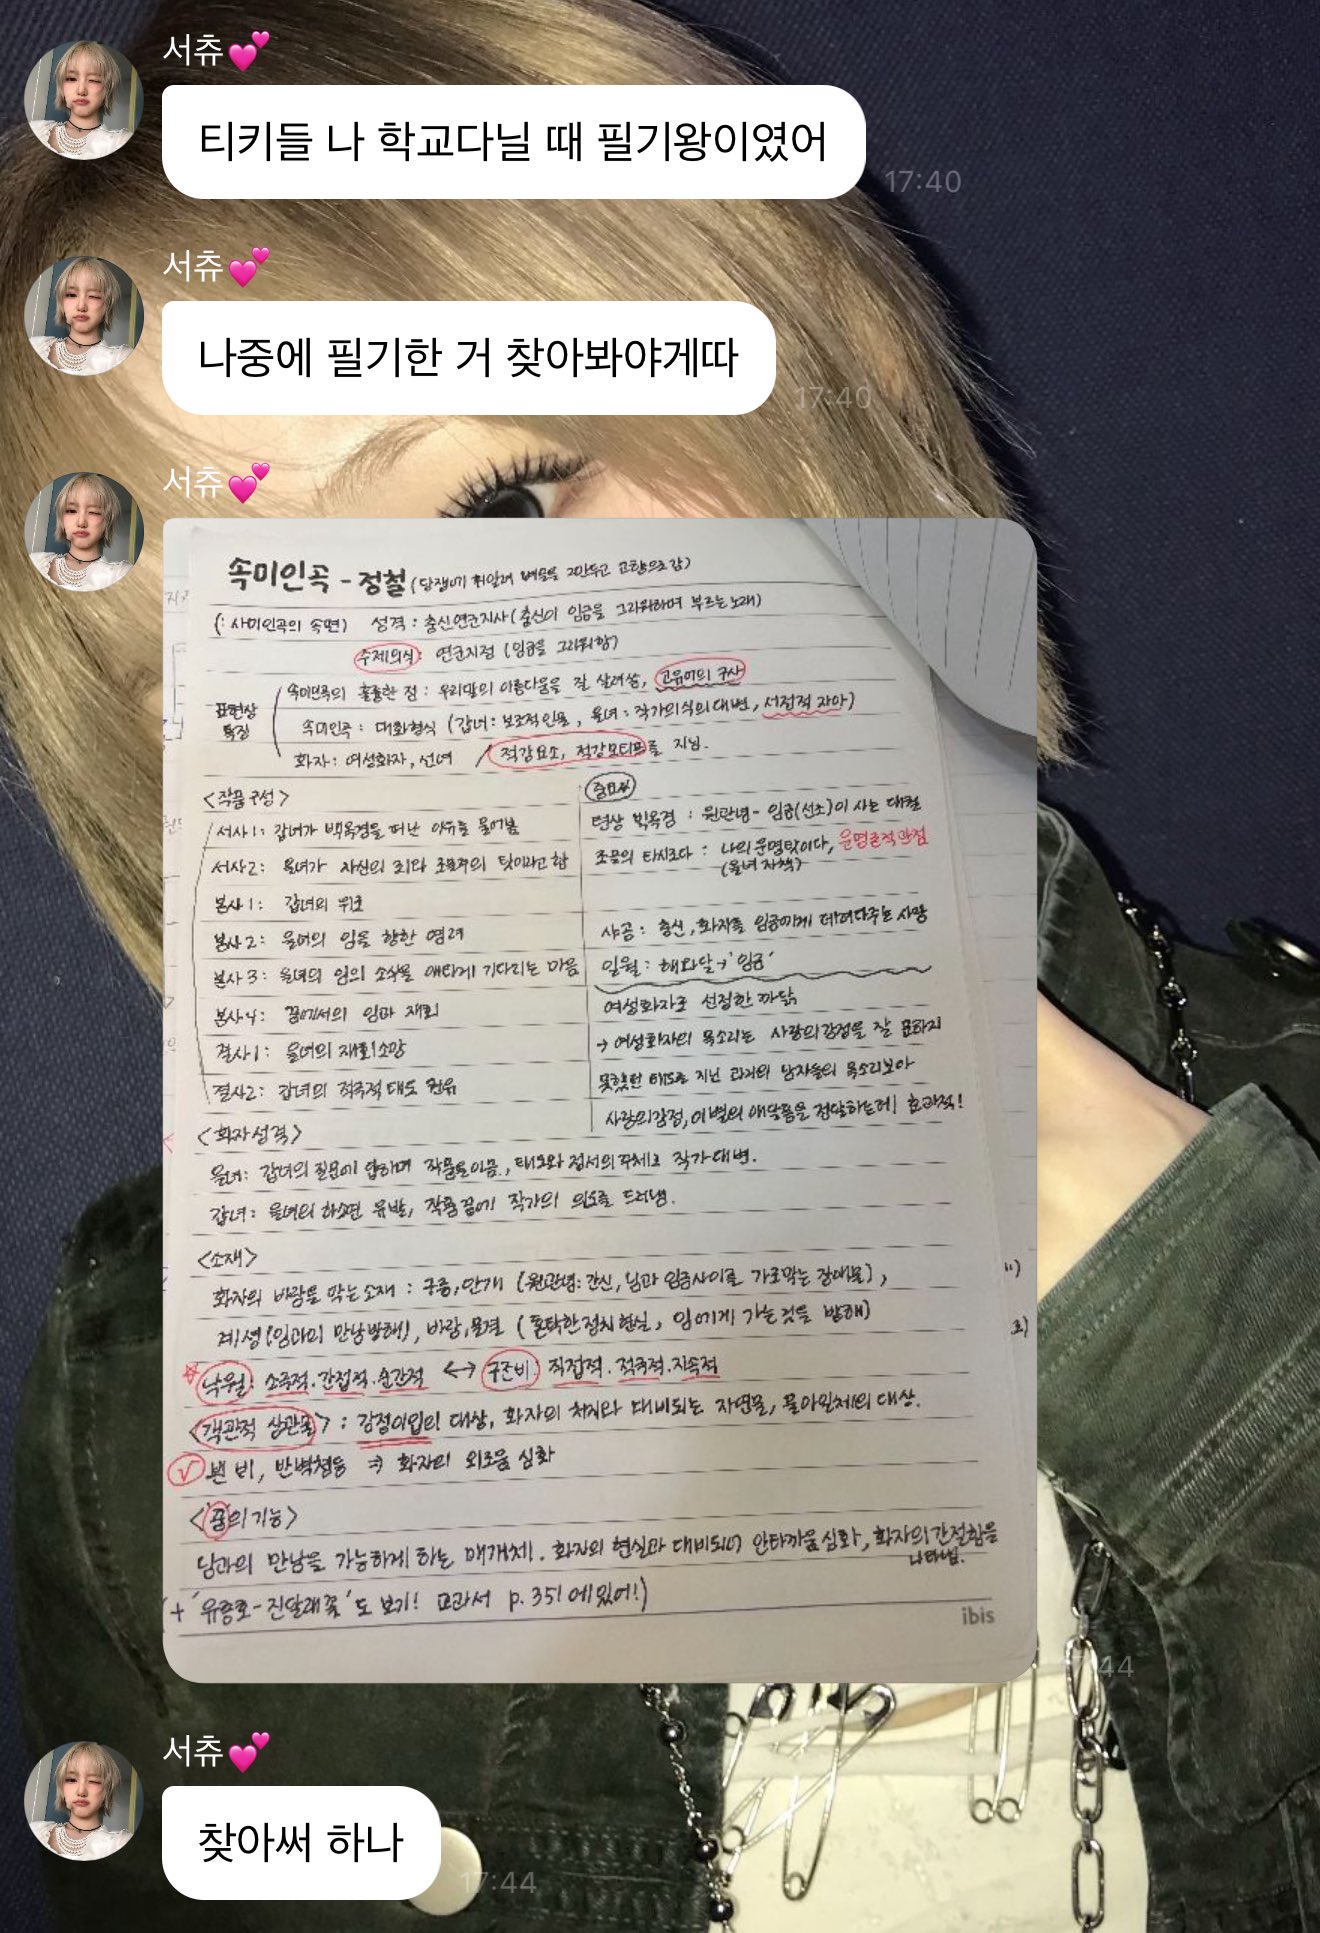 서츄💕
티키들 나 학교다닐 때 필기왕이였어
17:40
서츄💕
나중에 필기한 거 찾아봐야게따
17:40
서츄💕
속미인곡 - 정철 (당쟁에 휘말려 벼슬을 그만두고 고향으로 감)
(: 사미인곡의 속편) 성격 : 충신연군지사 (충신이 임금을 그리워하며 부르는 노래)
주제의식 : 연군지정 (임금을 그리워함)
표현상 특징
속미인곡의 훌륭한 점 : 우리말의 아름다움을 잘 살려씀, 고유어의 구사
속미인곡 : 대화형식 (갑녀 : 보조적인물, 을녀 : 작가의식의 대변, 서정적 자아)
화자 : 여성화자, 선녀 / 적강요소, 적강모티프를 지님.
<작품 구성>
서사1: 갑녀가 백옥경을 떠난 이유를 물어봄
서사2: 을녀가 자신의 죄와 조물주의 탓이라고 함
본사1: 갑녀의 위로
본사2: 을녀의 임을 향한 염려
본사3: 을녀의 임의 소식을 애타게 기다리는 마음
본사4: 꿈에서의 임과 재회
결사1: 을녀의 재회소망
결사2: 갑녀의 적극적 태도 권유
중요
천상 백옥경 : 원관념- 임금(선조)이 사는 대궐
조물의 타시로다 : 나의 운명탓이다, 운명론적 관점
(을녀 자책)
샤공 : 충신, 화자를 임금에게 데려다주는 사람
일월 : 해와 달→'임금'
여성화자로 선정한 까닭
→ 여성화자의 목소리는 사랑의 감정을 잘 표하지
못했던 태도를 지닌 과거의 남자들의 목소리보다
사랑의감정, 이별의 애달픔을 전달하는데 효과적!
<화자 성격>
을녀: 갑녀의 질문에 답하며 작품을 이끔, 태도와 정서의 주체로 작가 대변.
갑녀: 을녀의 하소연 유발, 작품 끝에 작가의 의도를 드러냄.
<소재>
화자의 바람을 막는 소재 : 구름, 안개 (원관념: 간신, 님과 임금사이를 가로막는 장애물),
계셩(임과의 만남방해), 바람, 물결 (혼탁한 정치현실, 임에게 가는것을 방해)
낙월: 소극적. 간접적. 순간적 ↔ 구즌비: 직접적. 적극적. 지속적
<객관적 상관물> : 감정이입의 대상, 화자의 처지와 대비되는 자연물, 물아일체의 대상.
√ 뷘 비, 반벽청등 ⇒ 화자의 외로움 심화
<꿈의 기능>
님과의 만남을 가능하게 하는 매개체. 화자의 현실과 대비되어 안타까움 심화, 화자의 간절함을
나타냄.
+ '유응호-진달래꽃'도 보기! 교과서 p.351에 있어!)
ibis
서츄💕
찾아써 하나
17:44